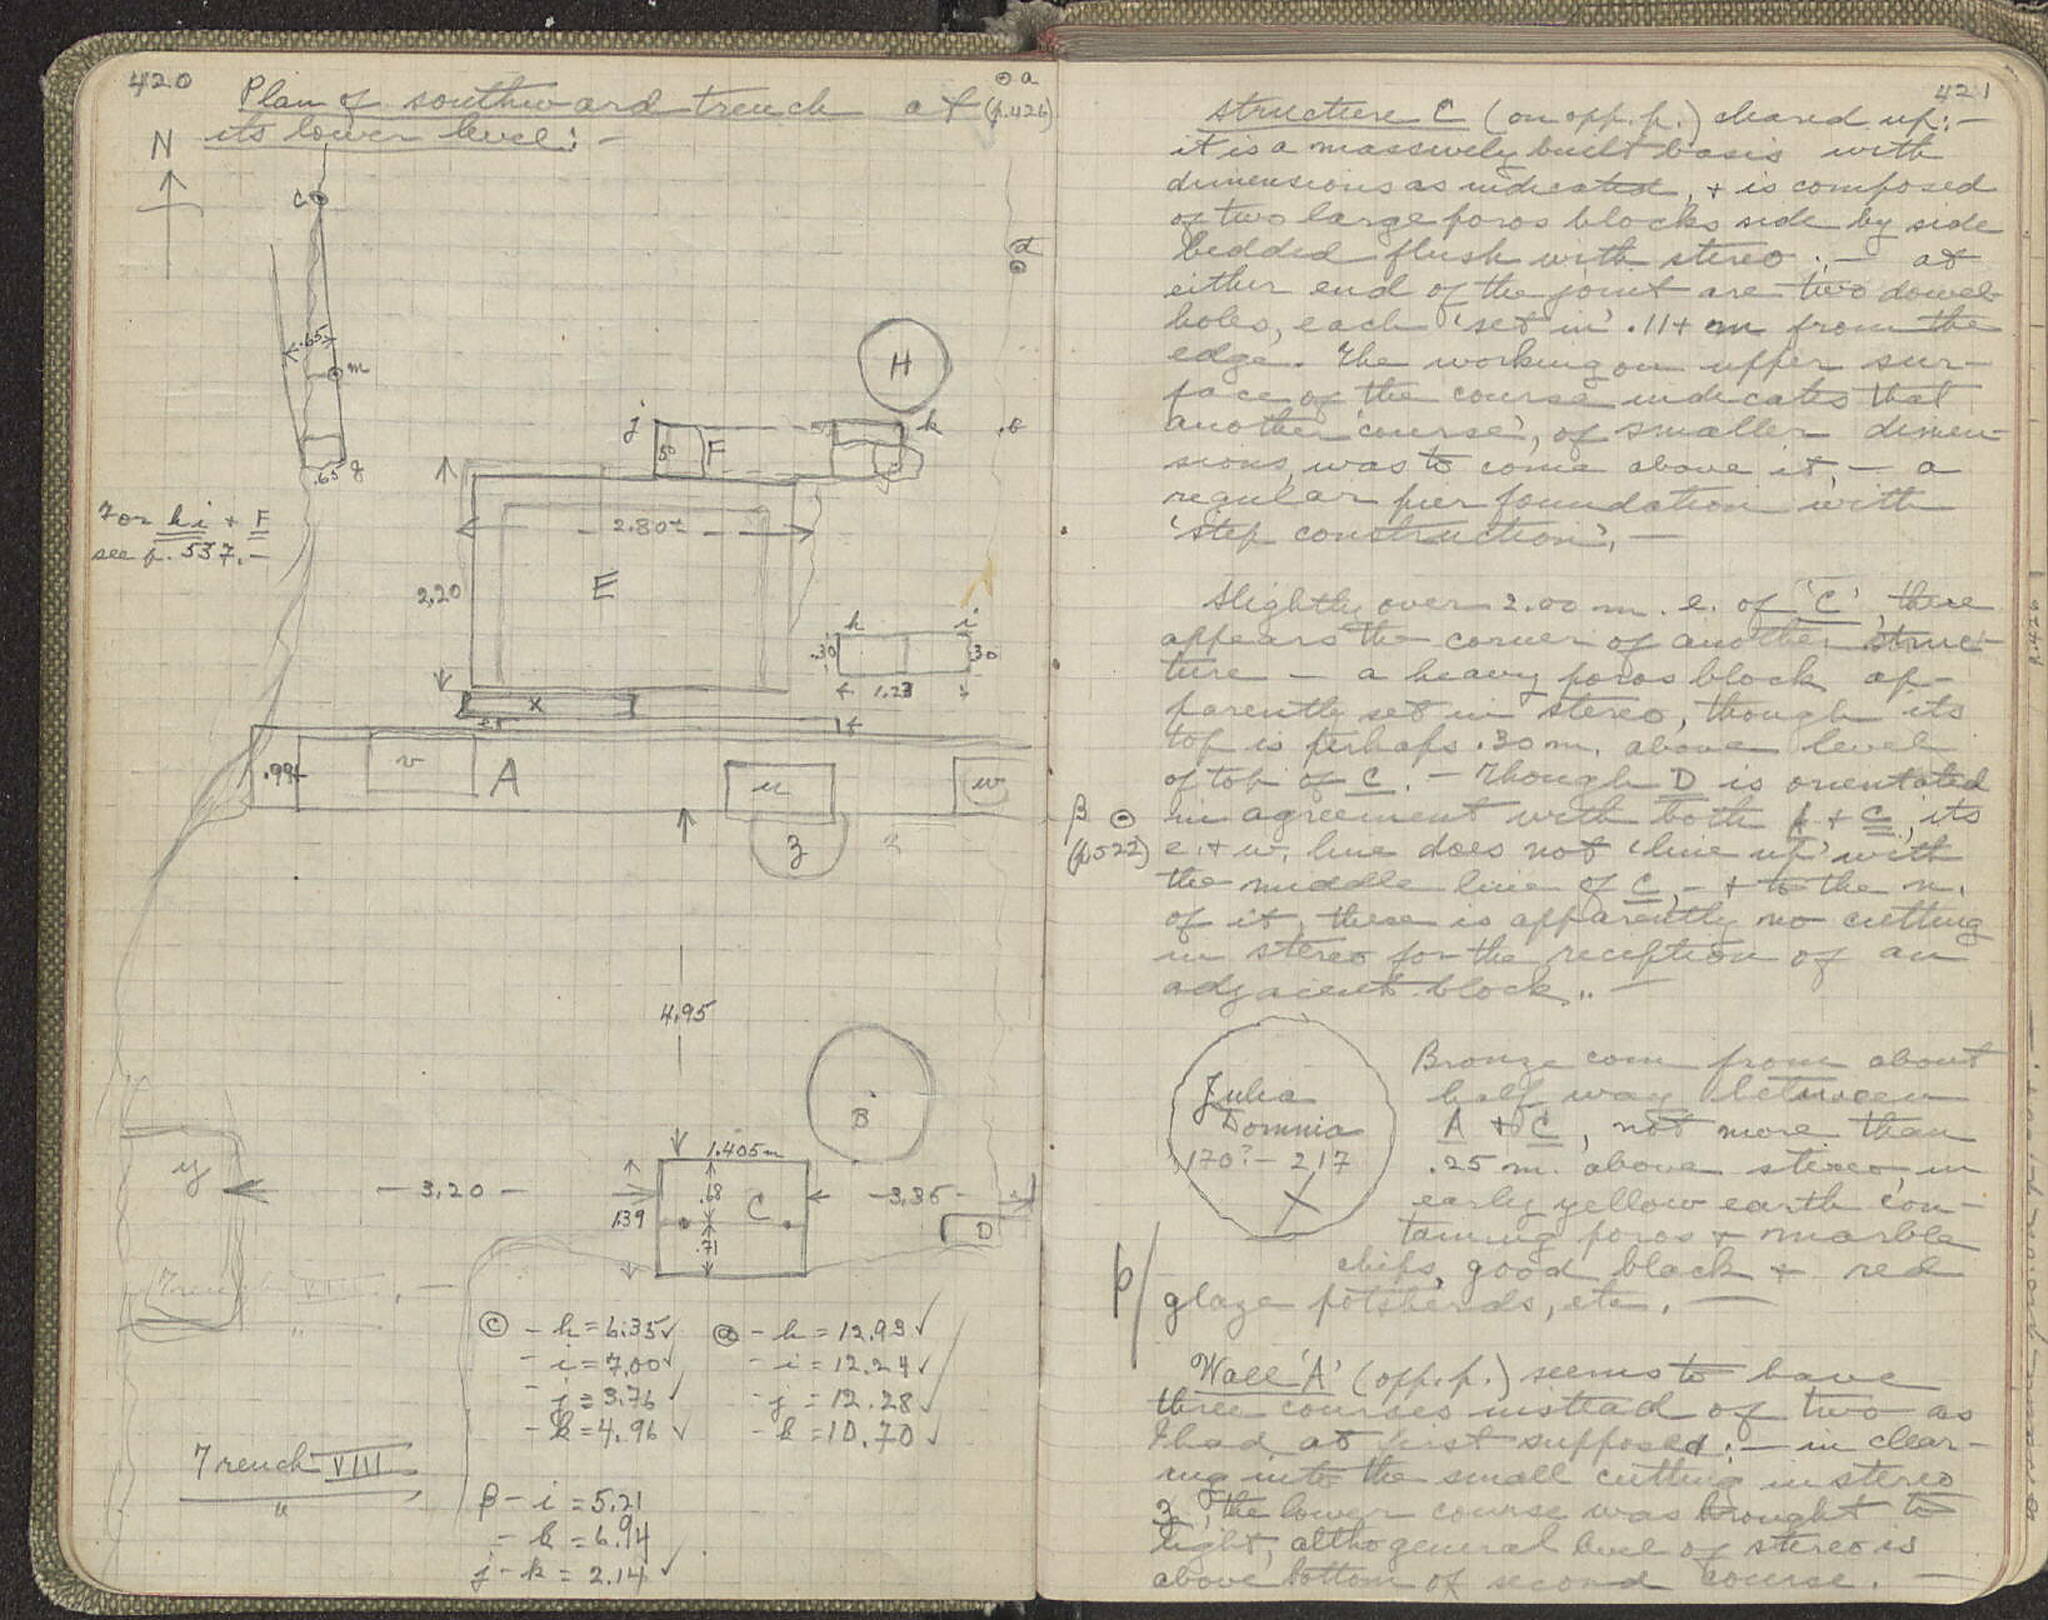 420
Plan of southward trench at
its lower level: —
⊙ a
(p. 426)
N
c
d
.65
m
H
j
.50
F
k
.e
.65
g
For hi + F
see p. 537. —
2.80±
2.20
E
h
i
.30
.30
1.23
x
.25
.99+
v
A
u
w
z
4.95
B
1.405m
y
— 3.20 —
.68
C
1.39
— 3.35 —
.71
D
Trench VIII
ⓒ - h = 6.35 ✓
- i = 7.00 ✓
- j = 3.76 ✓
- k = 4.96 ✓
ⓐ - h = 12.93 ✓
- i = 12.24 ✓
- j = 12.28 ✓
- k = 10.70 ✓
Trench VIII
"
β - i = 5.21
- k = 6.94
j - k = 2.14 ✓
421
Structure C (on opp. p.) cleared up: —
it is a massively built basis with
dimensions as indicated, + is composed
of two large poros blocks side by side
bedded flush with stereo; — at
either end of the joint are two dowel-
holes, each 'set in' .11+ m from the
edge. The working on upper sur-
face of the course indicates that
another 'course', of smaller dimen-
sions, was to come above it, — a
regular pier foundation with
'step construction'. —
Slightly over 2.00 m. e. of 'C', there
appears the corner of another struc-
ture — a heavy poros block ap-
parently set in stereo, though its
top is perhaps .30 m. above level
of top of C. — Though D is orientated
in agreement with both A + C, its
e. + w. line does not 'line up' with
the middle line of C, — + to the n.
of it, there is apparently no cutting
in stereo for the reception of an
adjacent block. . —
β ⊙
(p. 522)
Julia
Domnia
170? - 217
X
Bronze coin from about
half way between
A + C, not more than
.25 m. above stereo, in
early yellow earth con-
taining poros + marble
chips, good black + red
glaze potsherds, etc. —
p/
Wall 'A' (opp. p.) seems to have
three courses instead of two as
I had at first supposed; — in clear-
ing into the small cutting in stereo
z, the lower course was brought to
light, altho general level of stereo is
above bottom of second course. —
p. 426